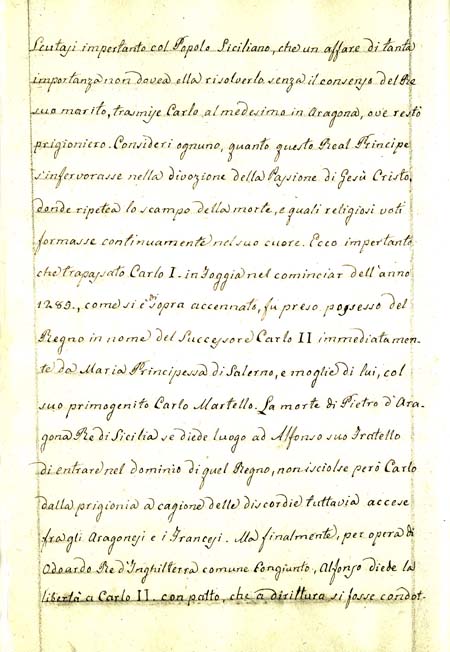 Scutasi impertanto col Popolo Siciliano, che un affare di tanta
importanza non dovea ella risolverlo senza il consenso del Re
suo marito, trasmise Carlo al medesimo in Aragona, ov'e restò
prigioniero. Consideri ognuno, quanto questo Real Principe
s'infervorasse nella divozione della Passione di Gesù Cristo,
donde ripetea lo scampo della morte, e quali religiosi voti
formasse continuamente nel suo cuore. Ecco impertanto
che trapassato Carlo I. in Foggia nel cominciar dell'anno
1285., come si è di sopra accennato, fu preso possesso del
Regno in nome del Successore Carlo II immediatamen-
te da Maria Principessa di Salerno, e moglie di lui, col
suo primogenito Carlo Martello. La morte di Pietro d'Ara-
gona Re di Sicilia se diede luogo ad Alfonso suo Fratello
di entrare nel dominio di quel Regno, non isciolse però Carlo
dalla prigionia a cagione delle discordie tuttavia accese
fra gli Aragonesi e i Francesi. Ma finalmente, per opera di
Odoardo Re d'Inghilterra comune Congiunto, Alfonso diede la
libertà a Carlo II. con patto, che a dirittura si fosse condot-